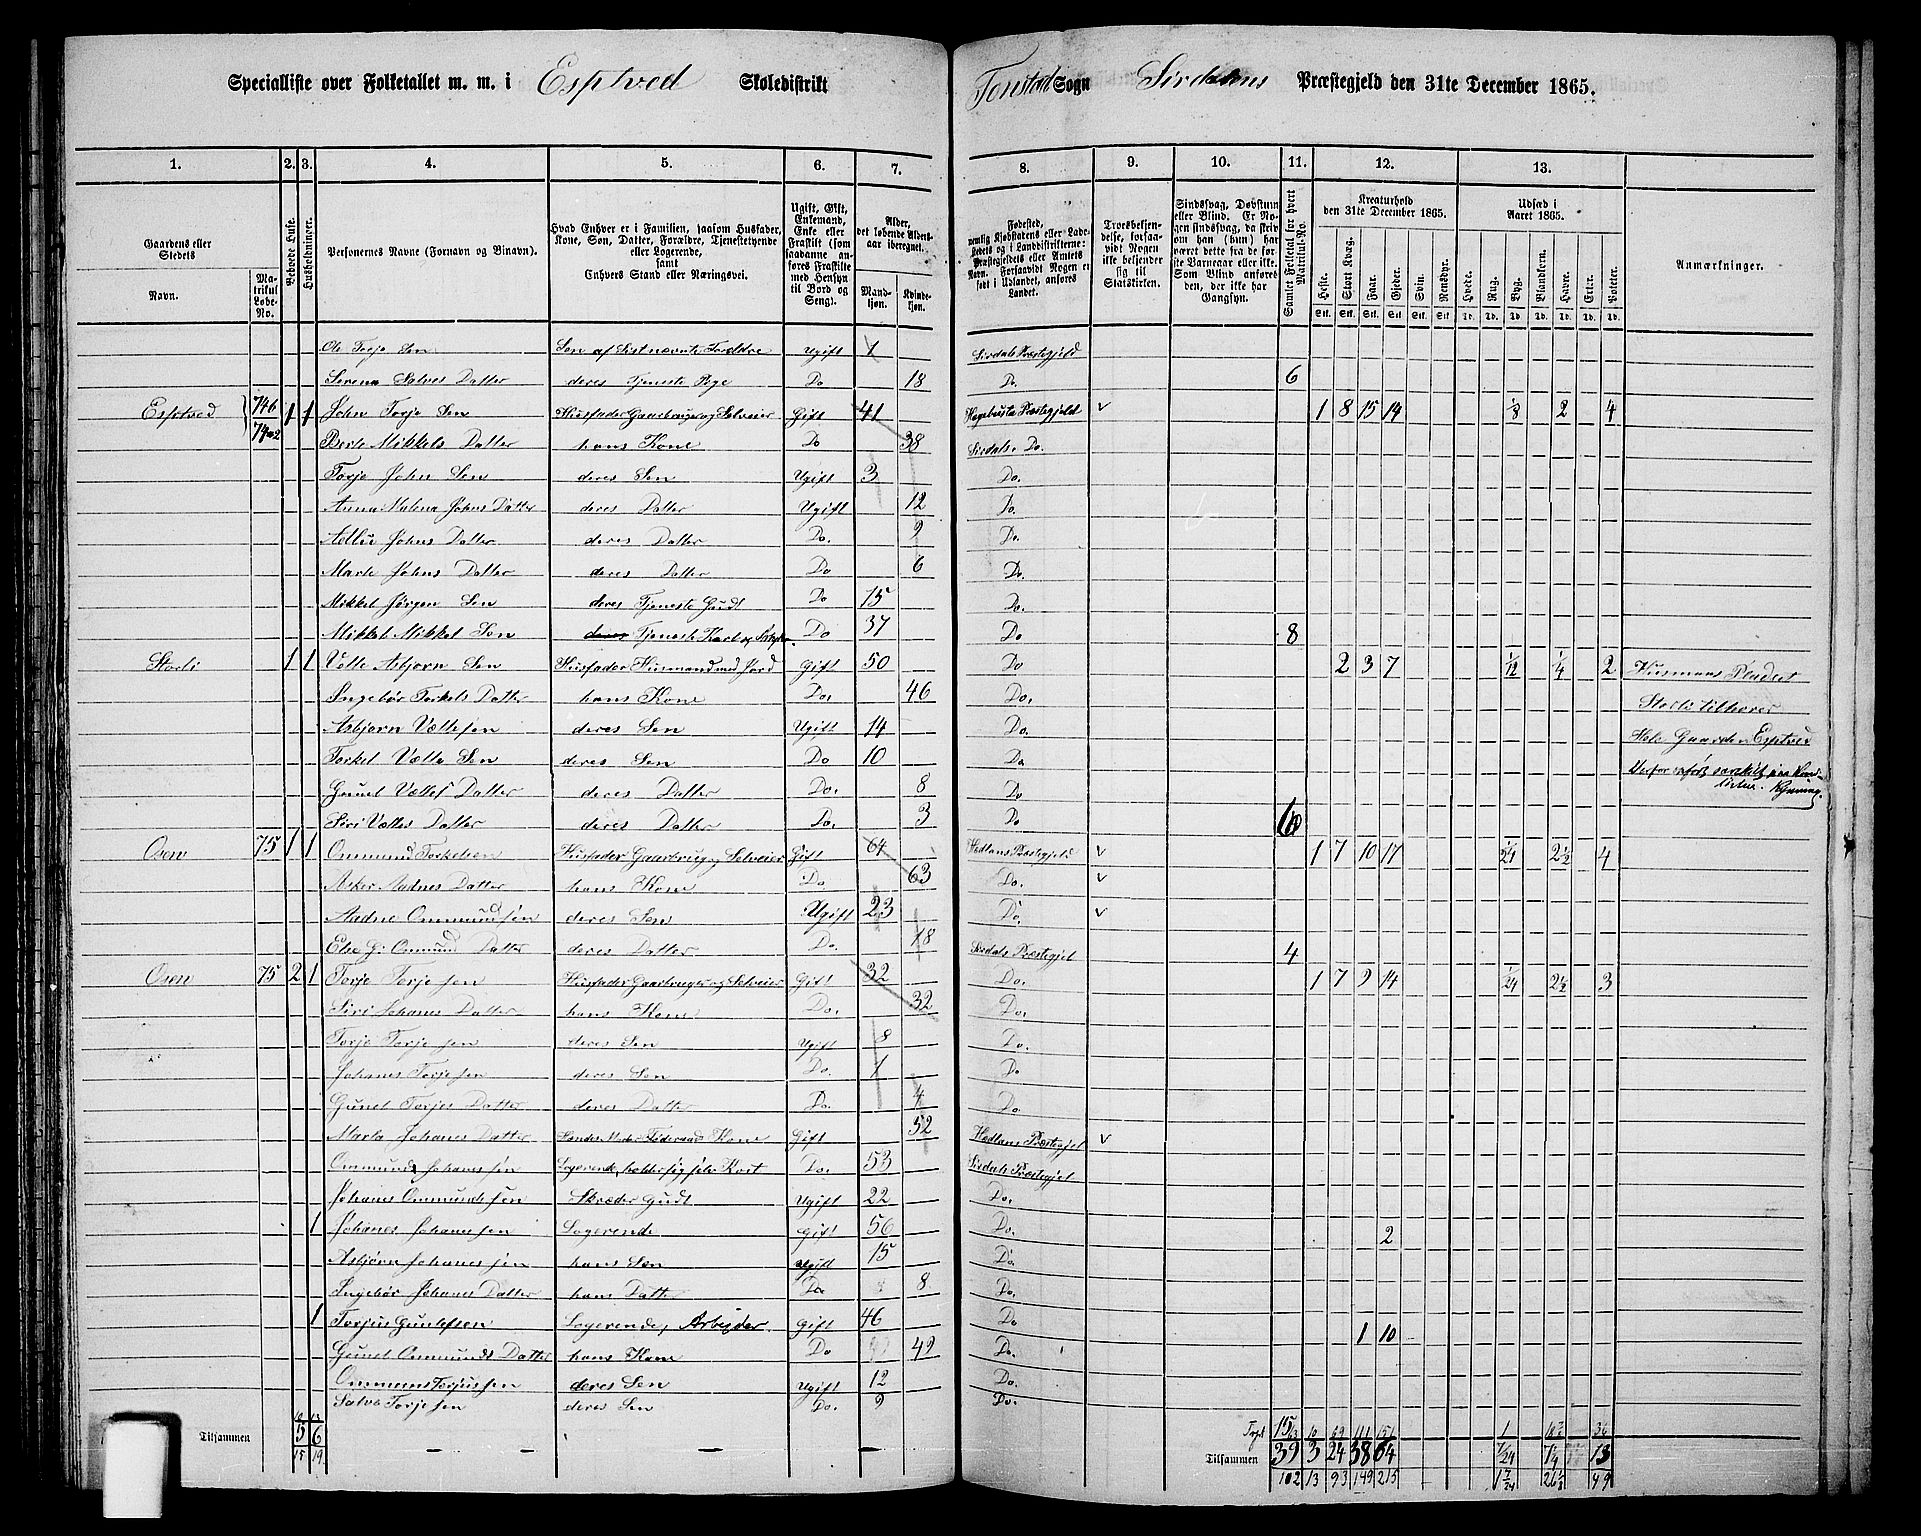 Specialliste over Folketallet m. m. i Esptved Skoledistrikt Tonstad Sogn Sirdalens Præstegjeld den 31te December 1865.
1. 2. 3. 4. 5. 6. 7. 8. 9. 10. 11. 12. 13.
Gaardens eller Stedets Navn. Matrikul Løbe-No. Beboede Huse. Husholdninger. Personernes Navne (Fornavn og Binavn). Hvad Enhver er i Familien, saasom Husfader, Kone, Søn, Datter, Forældre, Tjenestetyende eller Logerende, samt Enhvers Stand eller Næringsvei. Ugift, Gift, Enkemand, Enke eller Fraskilt (som saadanne anføres Fraskilte med Hensyn til Bord og Seng). Alder, det løbende Aldersaar iberegnet. Mandkjøn. Kvindekjøn.
Fødested, Trosbekjendelse, forsaavidt Nogen ikke bekjender sig til Statskirken. Sindssvag, Døvstum eller Blind. Samlet Folketal for hvert Matrikul-No. Kreaturhold den 31te December 1865. Udsæd i Aaret 1865. Anmærkninger.
Heste. Stort Kvæg. Faar. Gjeder. Svin. Rensdyr. Hvede. Rug. Byg. Blandkorn. Havre. Erter. Poteter.
Ole Torje Søn Søn af Sistnævnte Foreldre Ugift 1 Sirdals Præstegjeld
Serena Salves Datter deres Tjeneste Pige Do 18 Do. 6
Esptved 74b 1 1 John Torje Søn Husfader Gaarbruger og Selveier Gift 41 Hægebosta Præstegjeld 1 8 15 14 1/8 2 4
Berte Mikkels Datter hans Kone Do 38 Sirdals Do.
Torje John Søn deres Søn Ugift 3 Do.
Anna Malena Johns Datter deres Datter Ugift 12 Do.
Johns Datter deres Datter Do. 9 Do.
Marte Johns Datter deres Datter Do 6 Do.
Mikkel Jørgen Søn deres Tjeneste Gudt Do 15 Do.
Mikkel Mikkel Søn deres Tjeneste Karl Do 37 Do 8
Storli 1 1 Velle Asbjørn Søn Husfader Husmand med Jord Gift 50 Do 2 3 7 1/12 1/4 2 Husmans Pladset
Ingebør Torkels Datter hans Kone Do. 46 Do. Storli tilhører
Asbjørn Vellesen deres Søn Ugift 14 Do Hele Gaarden Esptved
Torkel Velle Søn deres Søn Do 10 Do
Gunel Velles Datter deres Datter Do. 8 Do
Siri Velles Datter deres Datter Do. 3 Do 6
Osen 75 1 1 Ommund Torkelsen Husfader Gaarbrug og Selveier Gift 64 Hedlans Præstegjeld 1 7 10 17 1/24 2 1/2 4
Asker Aadnes Datter hans Kone Do 63 Do.
Aadne Ommundsøn deres Søn Ugift 23 Do.
Else G. Ommund Datter deres Datter Do. 18 Sirdals Præstegjel 4
Osen 75 2 1 Torje Torjesen Husfader Gaarbruger og Selveier Gift 32 Do. 1 7 9 14 1/24 2 1/2 3
Siri Johanes Datter hans Kone Do. 32 Do.
Torje Torjesen deres Søn Ugift 8 Do.
Johanes Torjesen deres Søn Do. 1 Do
Gunel Torjes Datter deres Datter Do. 4 Do
Marta Johanes Datter Moder Føderaads Kone Gift 52 Hedlans Præstegjel
Ommund Johanessen Logerende, holder sig selv Kost Do. 53 Sirdals Præstegjel
Johanes Ommundsen Skræder Gudt Ugift 22 Do.
1 Johanes Johanessen Logerende Gift 56 Do. 2
Asbjørn Johanessen hans Søn Ugift 15 Do.
Ingebør Johanes Datter hans Datter Do 8 Do.
1 Torjus Gunlefsen Logerende, Arbejder. Gift 46 Do 1 10
Gunel Ommunds Datter hans Kone Do 49 Do.
Ommund Torjussen deres Søn Ugift 12 Do.
Salve Torjesen deres Søn Do. 9 Do. 15
Tilsammen 5 6 Tilsammen 39 3 24 38 64 7/24 7 1/4 13
15 19 102 13 93 149 215 1 7/24 49